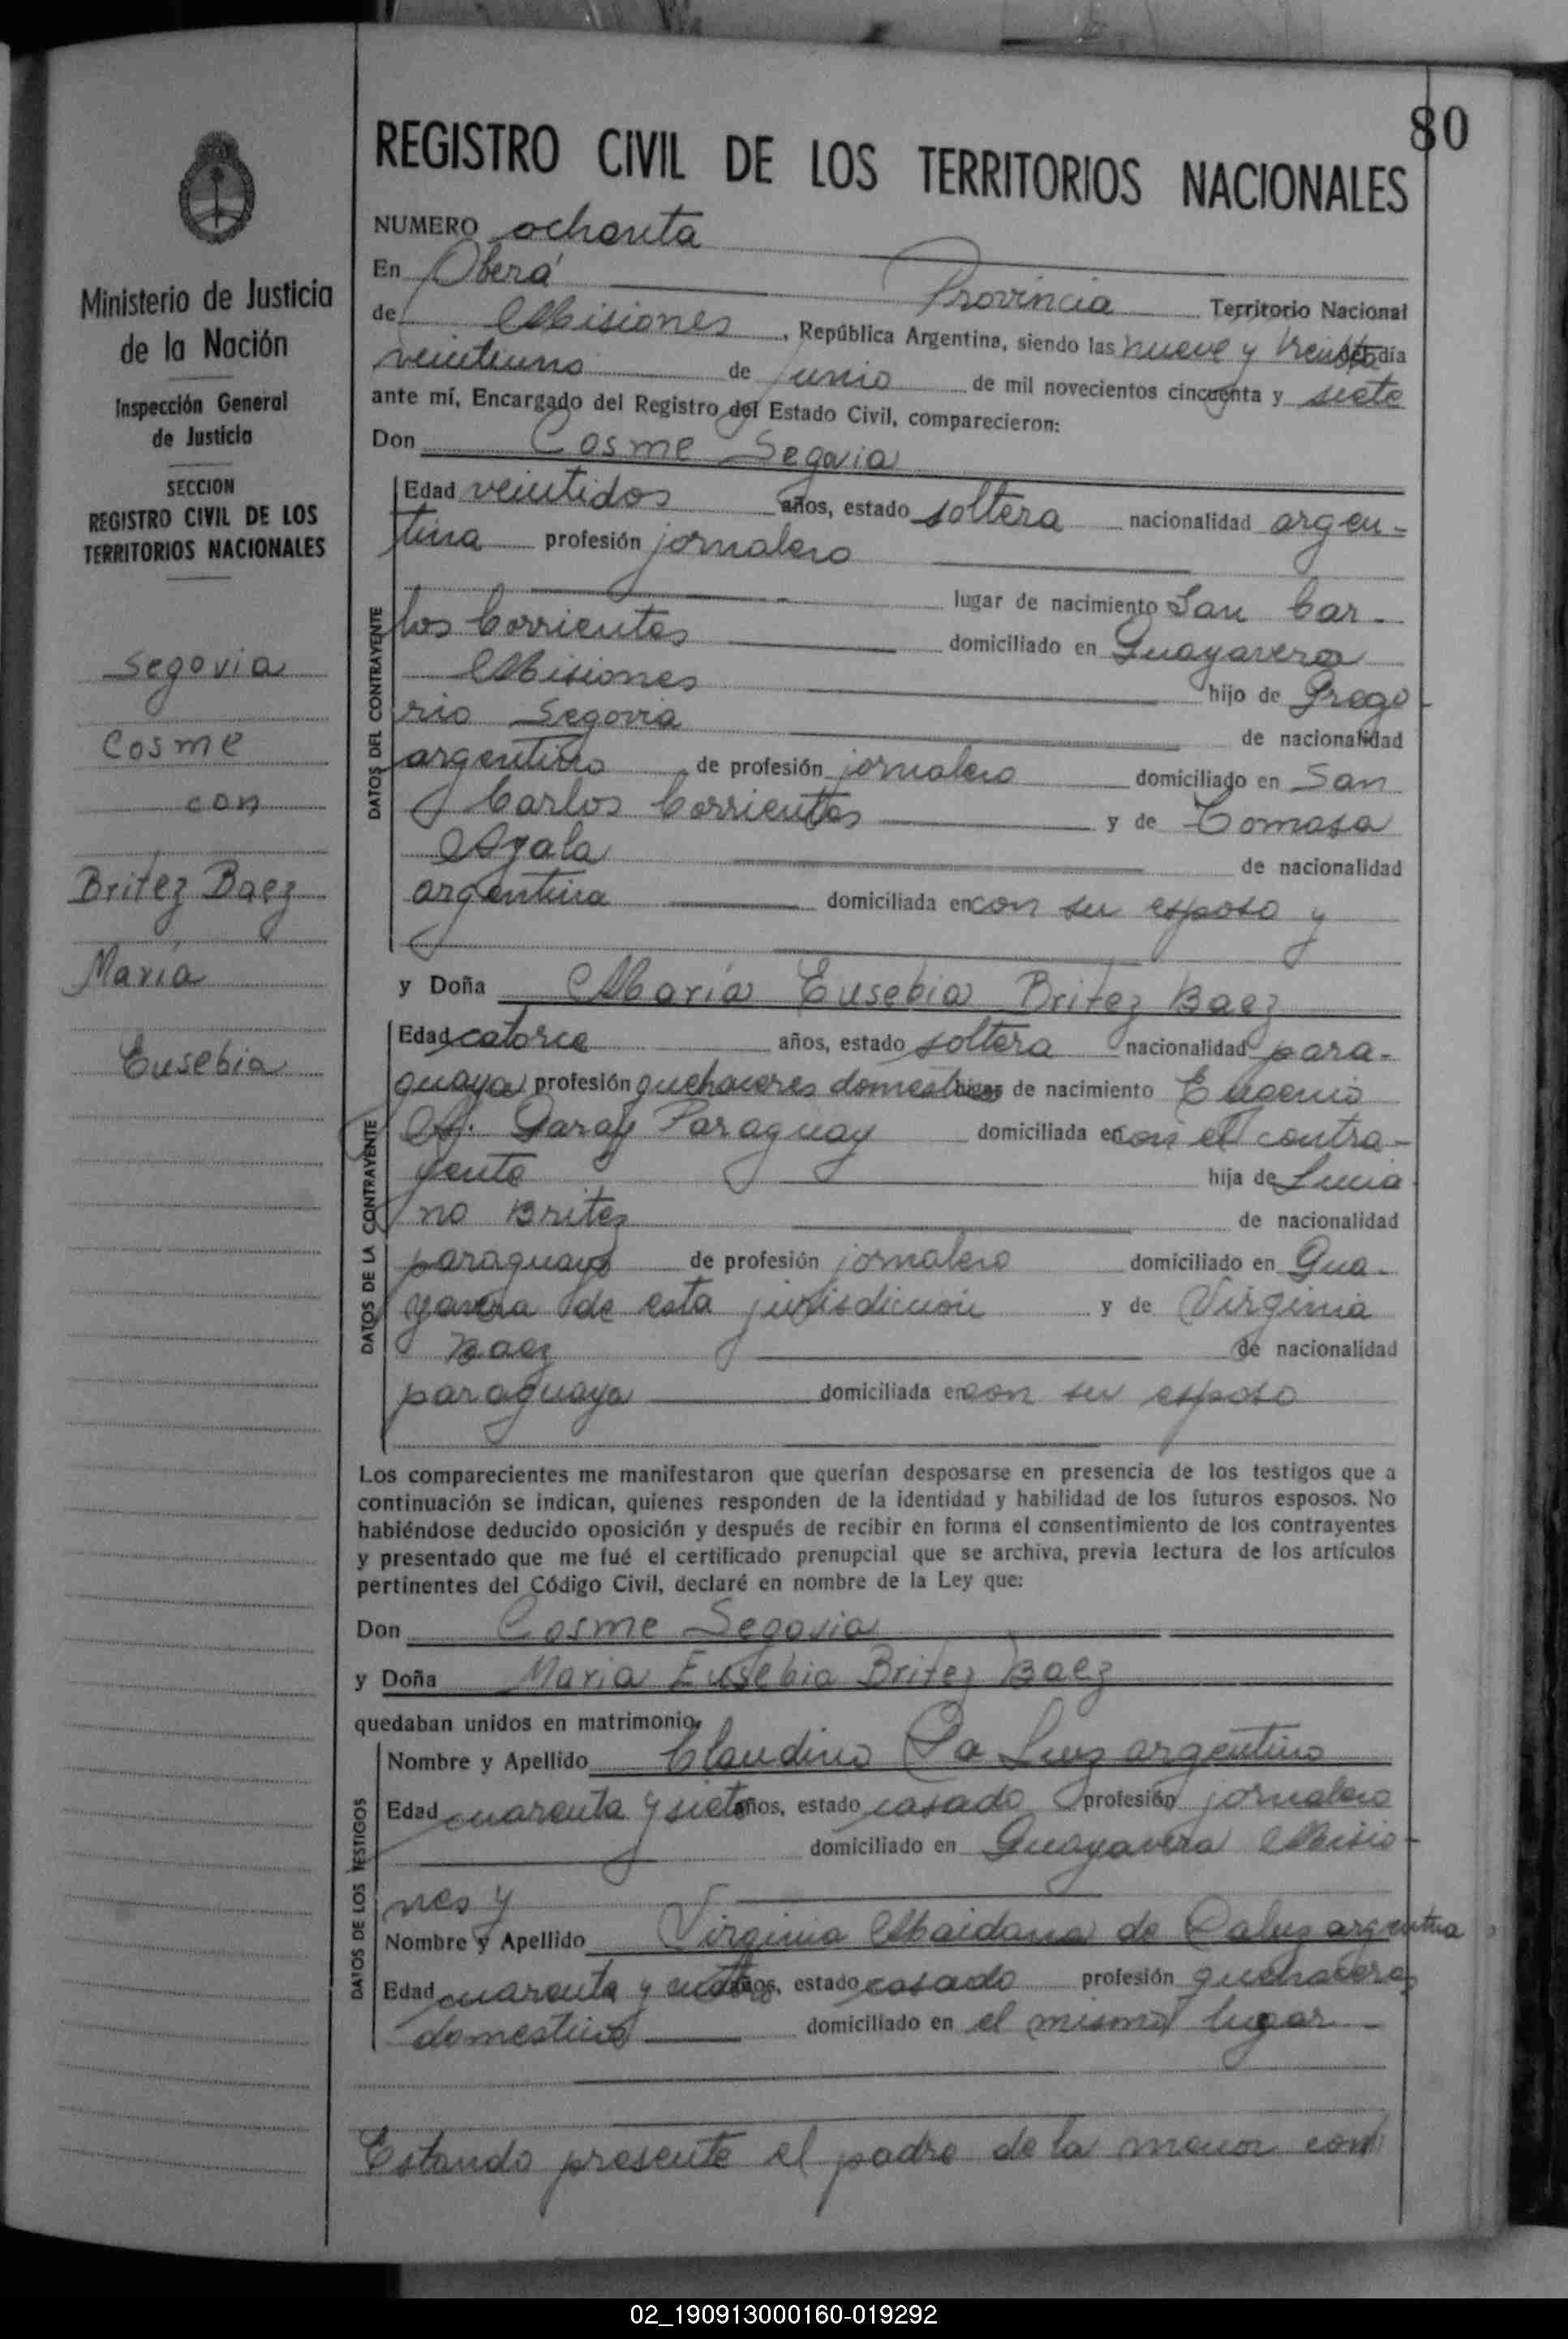 80
REGISTRO CIVIL DE LOS TERRITORIOS NACIONALES
Ministerio de Justicia
de la Nación
Inspección General
de Justicia
SECCION
REGISTRO CIVIL DE LOS
TERRITORIOS NACIONALES
Segovia
Cosme
con
Britez Baez
María
Eusebia
NUMERO ochenta
En Oberá Provincia Territorio Nacional
de Misiones, República Argentina, siendo las nueve y treinta día
veintiuno de junio de mil novecientos cincuenta y siete
ante mí, Encargado del Registro del Estado Civil, comparecieron:
Don Cosme Segovia
DATOS DEL CONTRAYENTE
Edad veintidos años, estado soltera nacionalidad argen-
tina profesión jornalero
lugar de nacimiento San Car-
los Corrientes domiciliado en Guayavera
Misiones hijo de Grego-
rio Segovia de nacionalidad
argentino de profesión jornalero domiciliado en San
Carlos Corrientes y de Tomasa
Ayala de nacionalidad
argentina domiciliada en con su esposo y
y Doña María Eusebia Britez Baez
DATOS DE LA CONTRAYENTE
Edad catorce años, estado soltera nacionalidad para-
guaya profesión quehaceres domesticos lugar de nacimiento Eugenio
A. Garay Paraguay domiciliada en con el contra-
yente hija de Lucia
no Britez de nacionalidad
paraguayo de profesión jornalero domiciliado en Gua-
yavera de esta jurisdiccion y de Virginia
Baez de nacionalidad
paraguaya domiciliada en con su esposo
Los comparecientes me manifestaron que querían desposarse en presencia de los testigos que a
continuación se indican, quienes responden de la identidad y habilidad de los futuros esposos. No
habiéndose deducido oposición y después de recibir en forma el consentimiento de los contrayentes
y presentado que me fué el certificado prenupcial que se archiva, previa lectura de los artículos
pertinentes del Código Civil, declaré en nombre de la Ley que:
Don Cosme Segovia
y Doña Maria Eusebia Britez Baez
quedaban unidos en matrimonio.
DATOS DE LOS TESTIGOS
Nombre y Apellido Claudino Da Luz argentino
Edad cuarenta y siete años, estado casado profesión jornalero
domiciliado en Guayavera Misio-
nes y
Nombre y Apellido Virginia Maidana de Daluz argentina
Edad cuarenta y años, estado casado profesión quehaceres
domestico domiciliado en el mismo lugar
Estando presente el padre de la menor con
02_190913000160-019292